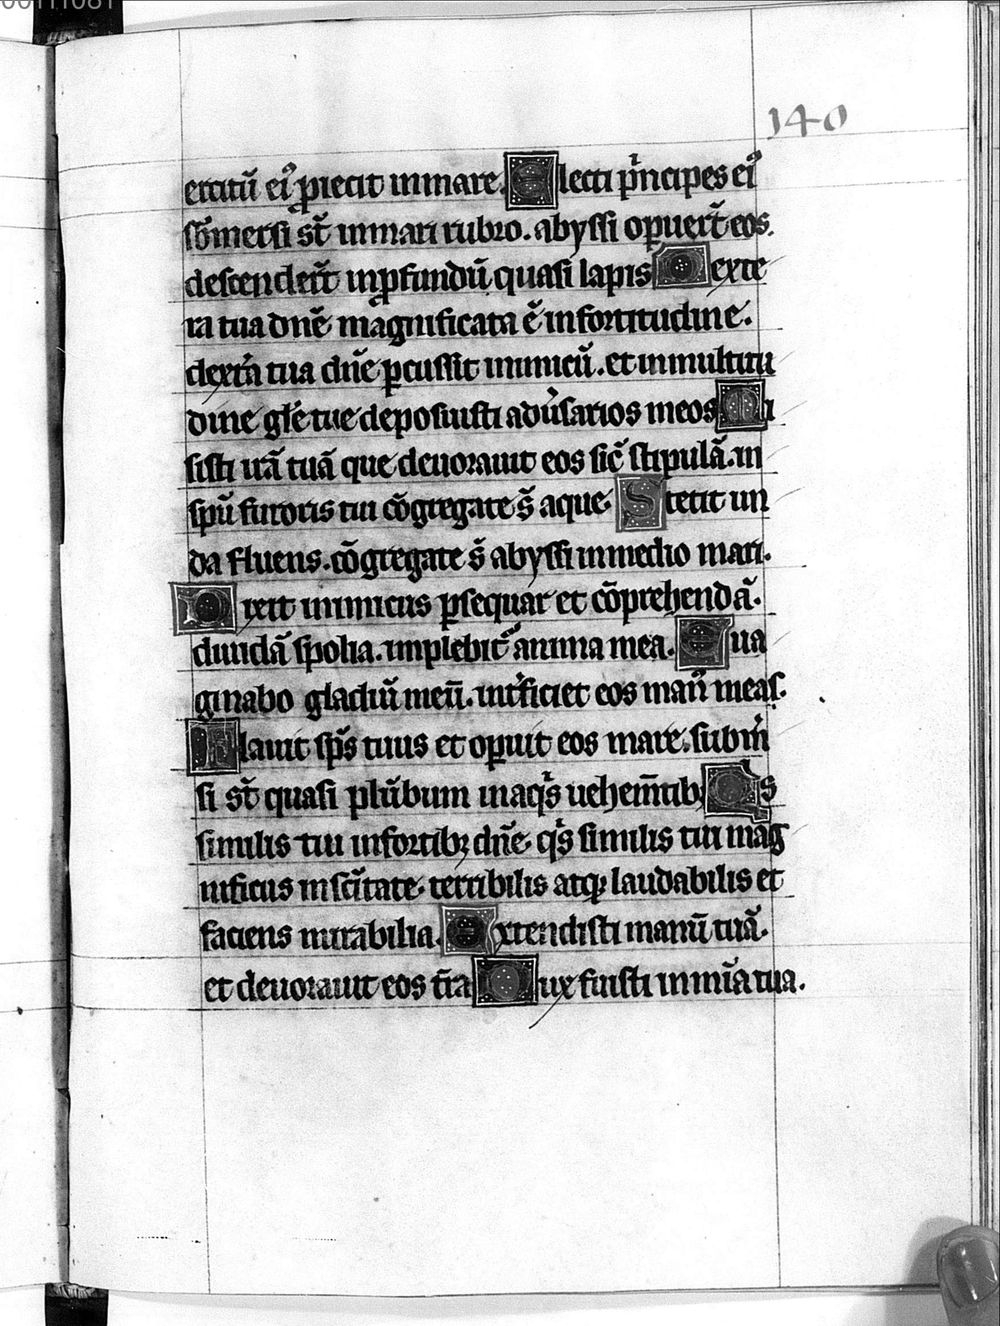 00111081
140
ercitū ei9 proiecit in mare. Electi p̄ncipes ei9
sb̄mersi st̄ in mari rubro. abyssi opuert̄ eos.
descendert̄ in pfundū quasi lapis Dexte
ra tua dn̄e magnificata ē in fortitudine.
dext̄a tua dn̄e pcussit inimicū. et in multitu
dine gl̄e tue deposuisti adūsarios meos Mi
sisti irā tuā que deuorauit eos sic̄ stipulā. in
spū furoris tui cōgregate s̄ aque. Stetit un
da fluens. cōgregate s̄ abyssi in medio mari.
Dixit inimicus psequar et cōprehendā.
diuidā spolia. implebit̄ anima mea. Eua
ginabo gladiū meū. int̄ficiet eos man9 meas.
Flauit sp̄s tuus et opuit eos mare. subm̄
si st̄ quasi plūbum in aqs̄ uehem̄tibꝫ Qs
similis tui in fortibꝫ dn̄e. qs̄ similis tui mag
nificus in sc̄itate. terribilis atqꝫ laudabilis et
faciens mirabilia. Extendisti manū tuā.
et deuorauit eos t̄ra Dux fuisti in mīa tua.